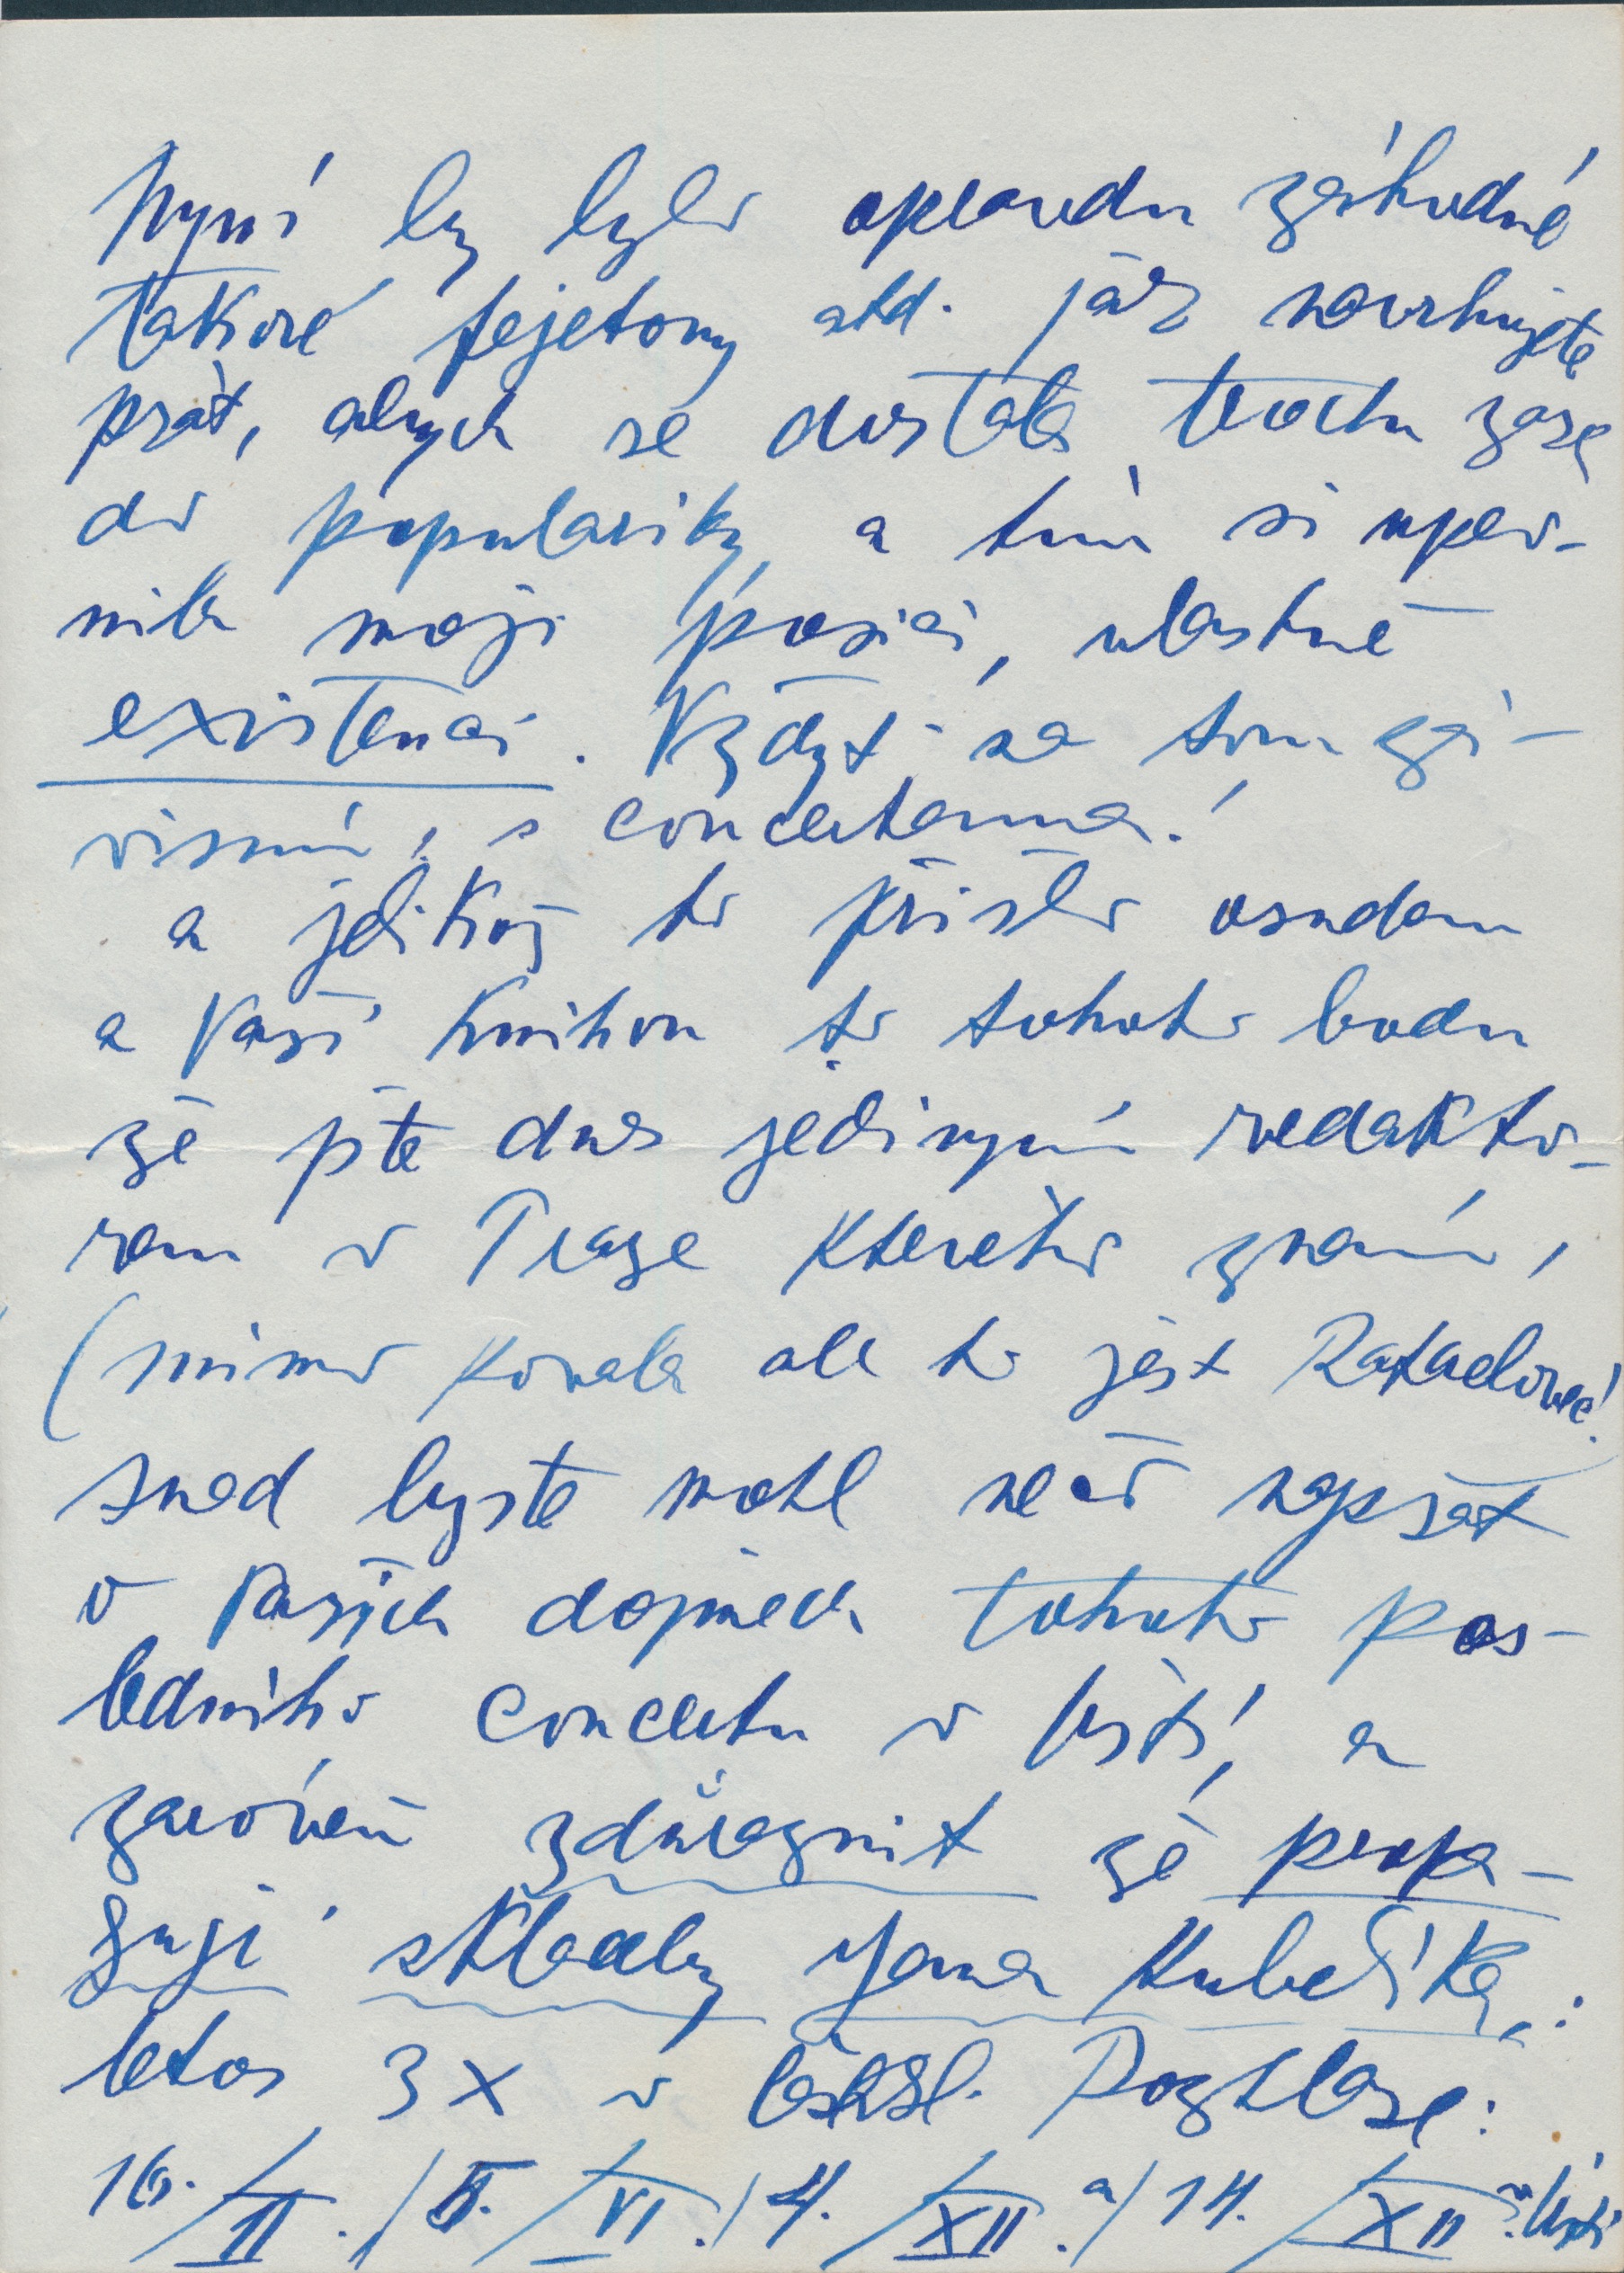 Nyní by bylo opravdu záhodné
takové fejetony atd. jak navrhujete
psát, abych se dostala trochu zase
do popularity a tím si upev-
nila moji posici, vlastně
existenci. Vždyť na tom zá-
visím, s concertama!
a jelikož to přišlo osudem
a Vaší knihou k tohoto bodu
že jste dnes jediným redakto-
rem v Praze kterého znám,
(mimo Kovala ale to jest Rafaelovec!
snad byste mohl něco napsat
o Vašich dojmech tohoto pos-
ledního concertu v Ústí, a
zároveň zdůraznit že propa-
guji skladby Jana Kubelíka,:
letos 3x v Českosl. Rozhlase:
16./II./5./VI./4./XII. a/14./XII v Ústí